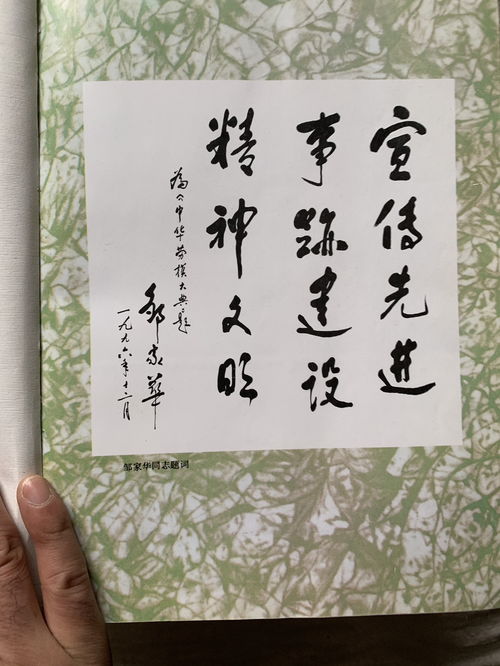 宣传先进
事跡建设
精神文明
为《中华劳模大典》题
邹家华
一九九六年十二月
邹家华同志题词